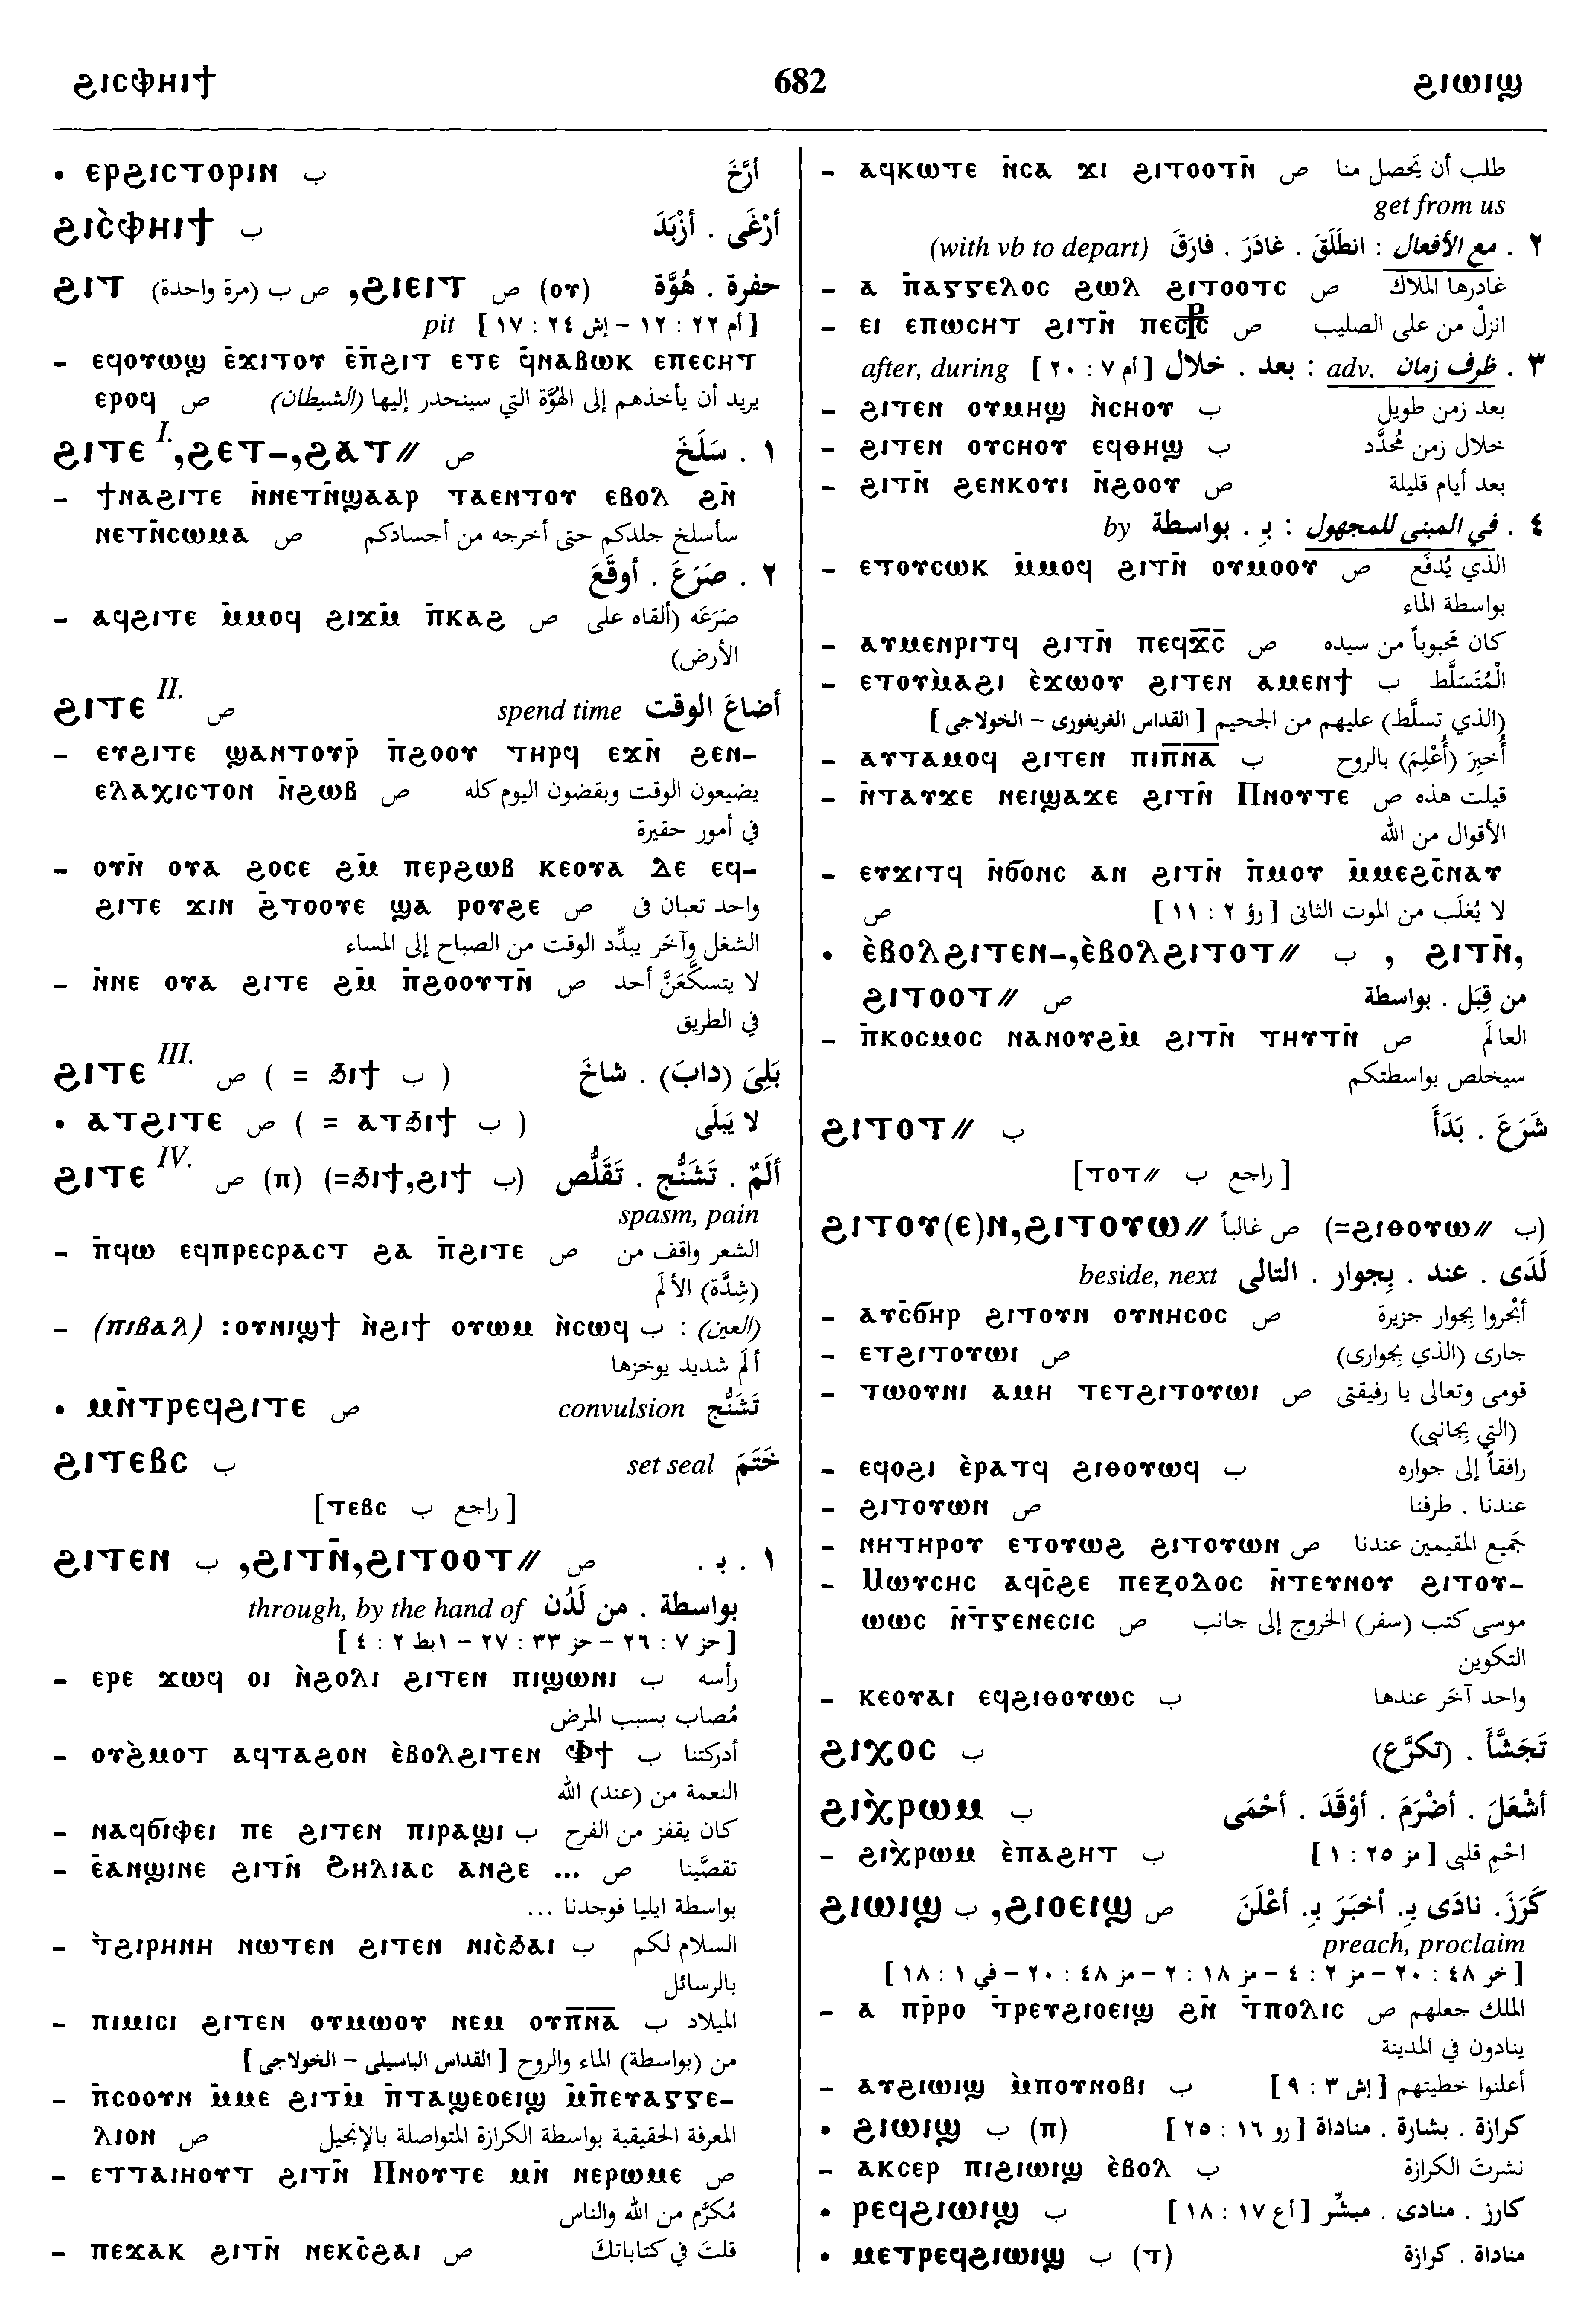 ϩⲓⲥⲫⲏⲓϯ 682 ϩⲓⲱⲓϣ
• ⲉⲣϩⲓⲥⲧⲟⲣⲓⲛ ب أرَّخَ
ϩⲓⲥ̀ⲫⲏⲓϯ ب أرْغَى . أزْبَدَ
ϩⲓⲧ ص ب (مرة واحدة) ,ϩⲓⲉⲓⲧ ص (ⲟⲩ) حفرة . هُوَّة
[أم ٢٢ : ١٢ – إش ٢٤ : ١٧ ] pit
– ⲉϥⲟⲩⲱϣ ⲉ̄ϫⲓⲧⲟⲩ ⲉ̄ⲡ̄ϩⲓⲧ ⲉⲧⲉ ϥ̄ⲛⲁⲃⲱⲕ ⲉⲡⲉⲥⲏⲧ
ⲉⲣⲟϥ ص يريد أن يأخذهم إلى الهُوَّة التي سينحدر إليها (الشيطان)
ϩⲓⲧⲉ I. ,ϩⲉⲧ–,ϩⲁⲧ// ص ١ . سَلَخَ
– ϯⲛⲁϩⲓⲧⲉ ⲛ̄ⲛⲉⲧⲛ̄ϣⲁⲁⲣ ⲧⲁⲉⲛⲧⲟⲩ ⲉⲃⲟⲗ ϩⲛ̄
ⲛⲉⲧⲛ̄ⲥⲱⲙⲁ ص سأسلخ جلدكم حتى أخرجه من أجسادكم
٢ . صَرَعَ . أوقَعَ
– ⲁϥϩⲓⲧⲉ ⲙ̄ⲙⲟϥ ϩⲓϫⲙ̄ ⲡ̄ⲕⲁϩ ص صَرَعَه (ألقاه على
الأرض)
ϩⲓⲧⲉ II. ص spend time أضاعَ الوقت
– ⲉⲩϩⲓⲧⲉ ϣⲁⲛⲧⲟⲩⲣ̄ ⲡ̄ϩⲟⲟⲩ ⲧⲏⲣϥ ⲉϫⲛ̄ ϩⲉⲛ–
ⲉⲗⲁⲭⲓⲥⲧⲟⲛ ⲛ̄ϩⲱⲃ ص يضيعون الوقت وبقضون اليوم كله
في أمور حقيرة
– ⲟⲩⲛ̄ ⲟⲩⲁ ϩⲟⲥⲉ ϩⲙ̄ ⲡⲉⲣϩⲱⲃ ⲕⲉⲟⲩⲁ ⲇⲉ ⲉϥ–
ϩⲓⲧⲉ ϫⲓⲛ ϩ̄ⲧⲟⲟⲩⲉ ϣⲁ ⲣⲟⲩϩⲉ ص واحد تعبان فى
الشغل وآخَر يبدِّد الوقت من الصباح إلى المساء
– ⲛ̄ⲛⲉ ⲟⲩⲁ ϩⲓⲧⲉ ϩⲙ̄ ⲡ̄ϩⲟⲟⲩⲧⲛ̄ ص لا يتسكَّعَنَّ أحد
في الطريق
ϩⲓⲧⲉ III. ص ( = ϧⲓϯ ب ) بَلِىَ (دابَ) . شاخَ
• ⲁⲧϩⲓⲧⲉ ص ( = ⲁⲧϧⲓϯ ب ) لا يَبلَى
ϩⲓⲧⲉ IV. ص (ⲡ) (=ϧⲓϯ,ϩⲓϯ ب) ألَمٌ . تَشَنُّج . تَقَلُّص
spasm, pain
– ⲡ̄ϥⲱ ⲉϥⲡⲣⲉⲥⲣⲁⲥⲧ ϩⲁ ⲡ̄ϩⲓⲧⲉ ص الشعر واقف من
(شِدَّة) الألَم
– (ⲡⲓⲃⲁⲗ) :ⲟⲩⲛⲓϣϯ ⲛ̀ϩⲓϯ ⲟⲩⲱⲙ ⲛ̀ⲥⲱϥ ب : (العين)
ألَم شديد يوخزها
• ⲙⲛ̄ⲧⲣⲉϥϩⲓⲧⲉ ص convulsion تَشَنُّج
ϩⲓⲧⲉⲃⲥ ب set seal خَتَمَ
[ⲧⲉⲃⲥ راجع ب]
ϩⲓⲧⲉⲛ ب ,ϩⲓⲧⲛ̄,ϩⲓⲧⲟⲟⲧ// ص ١ . بـ .
through, by the hand of بواسطة . من لَدُن
[حز ٧ : ٢٦ – حز ٣٣ : ٢٧ – ١بط ٢ : ٤ ]
– ⲉⲣⲉ ϫⲱϥ ⲟⲓ ⲛ̀ϩⲟⲗⲓ ϩⲓⲧⲉⲛ ⲡⲓϣⲱⲛⲓ ب رأسه
مُصاب بسبب المرض
– ⲟⲩϩ̀ⲙⲟⲧ ⲁϥⲧⲁϩⲟⲛ ⲉ̀ⲃⲟⲗϩⲓⲧⲉⲛ Ⲫϯ ب أدركتنا
النعمة من (عند) الله
– ⲛⲁϥϭⲓⲫⲉⲓ ⲡⲉ ϩⲓⲧⲉⲛ ⲡⲓⲣⲁϣⲓ ب كان يقفز من الفرح
– ⲉ̄ⲁⲛϣⲓⲛⲉ ϩⲓⲧⲛ̄ Ϩⲏⲗⲓⲁⲥ ⲁⲛϩⲉ ... ص تقصَّينا
بواسطة ايليا فوجدنا ...
– ⲧ̀ϩⲓⲣⲏⲛⲏ ⲛⲱⲧⲉⲛ ϩⲓⲧⲉⲛ ⲛⲓⲥ̀ϧⲁⲓ ب السلام لكم
بالرسائل
– ⲡⲓⲙⲓⲥⲓ ϩⲓⲧⲉⲛ ⲟⲩⲙⲱⲟⲩ ⲛⲉⲙ ⲟⲩⲡ̅ⲛ̅ⲁ̅ ب الميلاد
من (بواسطة) الماء والروح [ القداس الباسيلى – الخولاجى ]
– ⲡ̄ⲥⲟⲟⲩⲛ ⲙ̄ⲙⲉ ϩⲓⲧⲙ̄ ⲡ̄ⲧⲁϣⲉⲟⲉⲓϣ ⲙ̄ⲡ̄ⲉⲩⲁⲅⲅⲉ–
ⲗⲓⲟⲛ ص المعرفة الحقيقية بواسطة الكرازة المتواصلة بالإنجيل
– ⲉⲧⲧⲁⲓⲏⲟⲩⲧ ϩⲓⲧⲛ̄ Ⲡⲛⲟⲩⲧⲉ ⲙⲛ̄ ⲛⲉⲣⲱⲙⲉ ص
مُكرَّم من الله والناس
– ⲡⲉϫⲁⲕ ϩⲓⲧⲛ̄ ⲛⲉⲕⲥ̄ϩⲁⲓ ص قلتَ في كتاباتكَ
– ⲁϥⲕⲱⲧⲉ ⲛ̄ⲥⲁ ϫⲓ ϩⲓⲧⲟⲟⲧⲛ̄ ص طلب أن يَحصل منا
get from us
٢ . مع الأفعال : انطَلَقَ . غادَرَ . فارَقَ (with vb to depart)
– ⲁ ⲡ̄ⲁⲅⲅⲉⲗⲟⲥ ϩⲱⲗ ϩⲓⲧⲟⲟⲧⲥ ص غادرها الملاك
– ⲉⲓ ⲉⲡⲱⲥⲏⲧ ϩⲓⲧⲛ̄ ⲡⲉⲥ⳨ⲥ ص انزلْ من على الصليب
٣ . ظرف زمان adv. : بعد . خلال [أم ٧ : ٢٠ ] after, during
– ϩⲓⲧⲉⲛ ⲟⲩⲙⲏϣ ⲛ̀ⲥⲏⲟⲩ ب بعد زمن طويل
– ϩⲓⲧⲉⲛ ⲟⲩⲥⲏⲟⲩ ⲉϥⲑⲏϣ ب خلال زمن مُحدَّد
– ϩⲓⲧⲛ̄ ϩⲉⲛⲕⲟⲩⲓ ⲛ̄ϩⲟⲟⲩ ص بعد أيام قليلة
٤ . في المبنى للمجهول : بـِ . بواسطة by
– ⲉⲧⲟⲩⲥⲱⲕ ⲙ̄ⲙⲟϥ ϩⲓⲧⲛ̄ ⲟⲩⲙⲟⲟⲩ ص الذي يُدفَع
بواسطة الماء
– ⲁⲩⲙⲉⲛⲣⲓⲧϥ ϩⲓⲧⲛ̄ ⲡⲉϥϫ̅ⲥ̅ ص كان مَحبوباً من سيده
– ⲉⲧⲟⲩⲙ̀ⲁϩⲓ ⲉ̀ϫⲱⲟⲩ ϩⲓⲧⲉⲛ ⲁⲙⲉⲛϯ ب الْمُتَسَلَّط
(الذي تسلَّط) عليهم من الجحيم [ القداس الغريغورى – الخولاجى ]
– ⲁⲩⲧⲁⲙⲟϥ ϩⲓⲧⲉⲛ ⲡⲓⲡ̅ⲛ̅ⲁ̅ ب أُخبِرَ (أُعْلِمَ) بالروح
– ⲛ̄ⲧⲁⲩϫⲉ ⲛⲉⲓϣⲁϫⲉ ϩⲓⲧⲛ̄ Ⲡⲛⲟⲩⲧⲉ ص قيلت هذه
الأقوال من الله
– ⲉⲩϫⲓⲧϥ ⲛ̄ϭⲟⲛⲥ ⲁⲛ ϩⲓⲧⲛ̄ ⲡ̄ⲙⲟⲩ ⲙ̄ⲙⲉϩⲥ̄ⲛⲁⲩ
ص لا يُغلَب من الموت الثانى [رؤ ٢ : ١١ ]
• ⲉ̀ⲃⲟⲗϩⲓⲧⲉⲛ–,ⲉ̀ⲃⲟⲗϩⲓⲧⲟⲧ// ب , ϩⲓⲧⲛ̄,
ϩⲓⲧⲟⲟⲧ// ص من قِبَل . بواسطة
– ⲡ̄ⲕⲟⲥⲙⲟⲥ ⲛⲁⲛⲟⲩϩⲙ̄ ϩⲓⲧⲛ̄ ⲧⲏⲩⲧⲛ̄ ص العالَم
سيخلص بواسطتكم
ϩⲓⲧⲟⲧ// ب شَرَعَ . بَدَأَ
[ⲧⲟⲧ// راجع ب]
ϩⲓⲧⲟⲩ(ⲉ)ⲛ,ϩⲓⲧⲟⲩⲱ// ص غالباً (=ϩⲓⲑⲟⲩⲱ// ب)
لَدَى . عند . بِجوار . التالى beside, next
– ⲁⲩⲥ̄ϭⲏⲣ ϩⲓⲧⲟⲩⲛ ⲟⲩⲛⲏⲥⲟⲥ ص أبْحَروا بِجوار جزيرة
– ⲉⲧϩⲓⲧⲟⲩⲱⲓ ص جارى (الذي بِجوارى)
– ⲧⲱⲟⲩⲛⲓ ⲁⲙⲏ ⲧⲉⲧϩⲓⲧⲟⲩⲱⲓ ص قومى وتعالى يا رفيقتى
(التي بِجانبى)
– ⲉϥⲟϩⲓ ⲉ̀ⲣⲁⲧϥ ϩⲓⲑⲟⲩⲱϥ ب رافقاً إلى جواره
– ϩⲓⲧⲟⲩⲱⲛ ص عندنا . طرفنا
– ⲛⲏⲧⲏⲣⲟⲩ ⲉⲧⲟⲩⲱϩ ϩⲓⲧⲟⲩⲱⲛ ص جَميع المقيمين عندنا
– Ⲙⲱⲩⲥⲏⲥ ⲁϥⲥ̄ϩⲉ ⲡⲉⲝⲟⲇⲟⲥ ⲛ̄ⲧⲉⲩⲛⲟⲩ ϩⲓⲧⲟⲩ–
ⲱⲱⲥ ⲛ̄ⲧ̄ⲅⲉⲛⲉⲥⲓⲥ ص موسى كتب (سفر) الخروج إلى جانب
التكوين
– ⲕⲉⲟⲩⲁⲓ ⲉϥϩⲓⲑⲟⲩⲱⲥ ب واحد آخَر عندها
ϩⲓⲭⲟⲥ ب تَجَشَّأَ . (تكرَّع)
ϩⲓⲭ̀ⲣⲱⲙ ب أشْعَلَ . أضْرَمَ . أوْقَدَ . أحْمَى
– ϩⲓⲭ̀ⲣⲱⲙ ⲉ̀ⲡⲁϩⲏⲧ ب احْمِ قلبى [ مز ٢٥ : ١ ]
ϩⲓⲱⲓϣ ب ,ϩⲓⲟⲉⲓϣ ص كَرَزَ. نادَى بـِ. أخبَرَ بـِ. أعْلَنَ
preach, proclaim
[ خر ٤٨ : ٢٠ – مز ٢ : ٤ – مز ١٨ : ٢ – مز ٤٨ : ٢٠ – في ١ : ١٨ ]
– ⲁ ⲡⲣ̄ⲣⲟ ⲧ̄ⲣⲉⲩϩⲓⲟⲉⲓϣ ϩⲛ̄ ⲧ̄ⲡⲟⲗⲓⲥ ص الملك جعلهم
ينادون في المدينة
– ⲁⲩϩⲓⲱⲓϣ ⲙ̀ⲡⲟⲩⲛⲟⲃⲓ ب أعلنوا خطيتهم [إش ٣ : ٩ ]
• ϩⲓⲱⲓϣ ب (ⲡ) كرازة . بشارة . مناداة [ رو ١٦ : ٢٥ ]
– ⲁⲕⲥⲉⲣ ⲡⲓϩⲓⲱⲓϣ ⲉ̀ⲃⲟⲗ ب نشرتَ الكرازة
• ⲣⲉϥϩⲓⲱⲓϣ ب كارز . منادى . مبشِّر [أع ١٧ : ١٨ ]
• ⲙⲉⲧⲣⲉϥϩⲓⲱⲓϣ ب (ⲧ) مناداة . كرازة